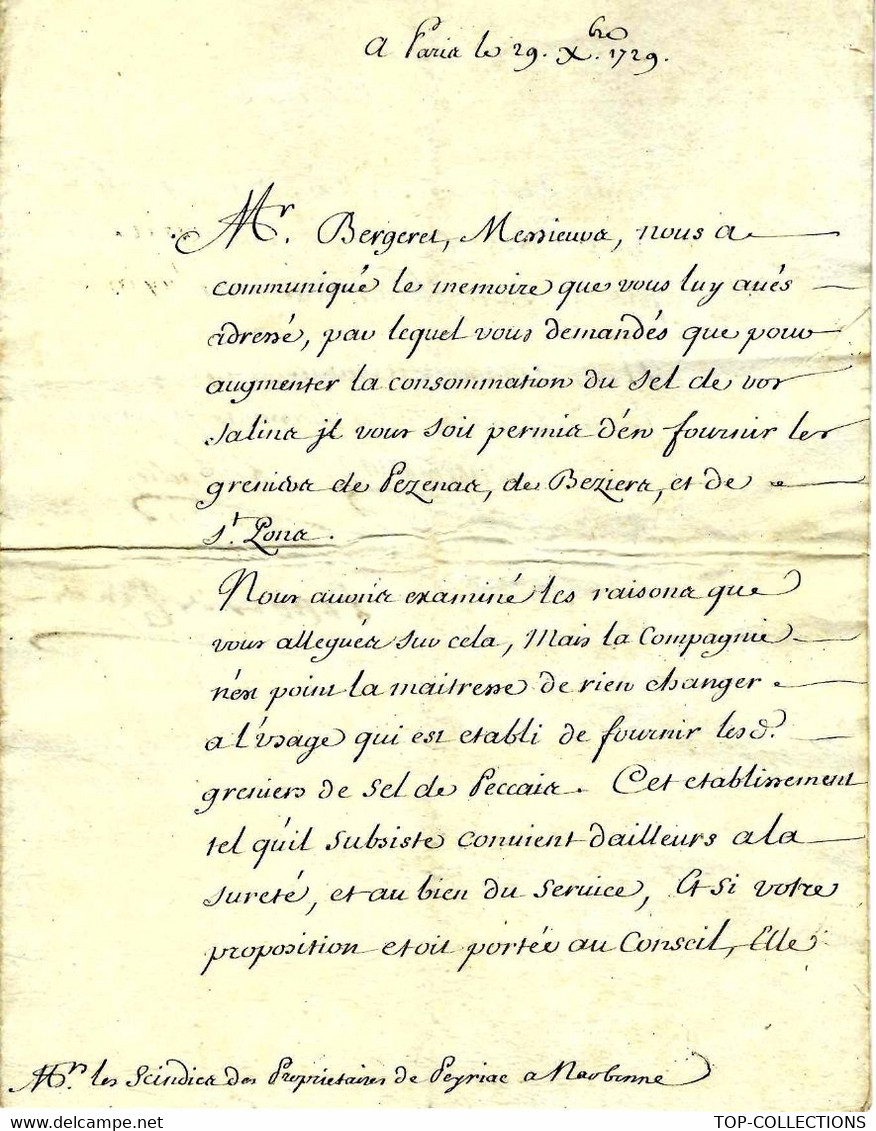 a Paris le 29. Xbre 1729.
Mr. Bergeret, Messieurs, nous a
communiqué le memoire que vous luy avés
adressé, par lequel vous demandés que pour
augmenter la consommation du sel de vos
salins jl vous soit permis d'en fournir les
greniers de Pezenas, de Beziers, et de
St. Pons.
Nous avons examiné les raisons que
vous allegués sur cela, Mais la Compagnie
n'est point la maitresse de rien changer
a l'usage qui est etabli de fournir les d.
greniers de sel de Peccais. Cet etablissement
tel qu'il subsiste convient d'ailleurs a la
sureté, et au bien du service, Et si votre
proposition etoit portée au Conseil, Elle
Mrs. les Scindics des Proprietaires de Peyriac a Narbonne
TOP-COLLECTIONS